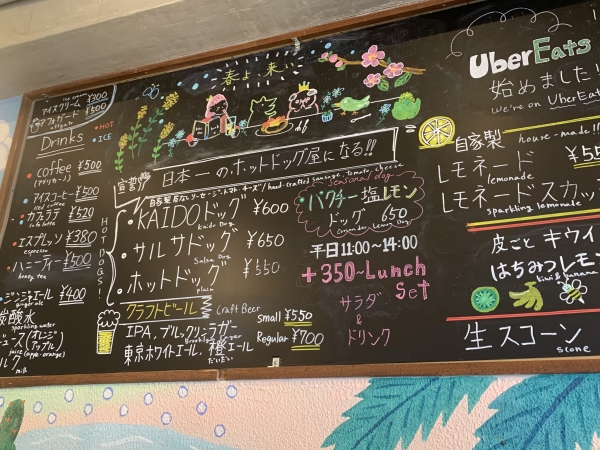 アイスクリーム ¥300
アフォガード ¥500
Drinks
・HOT
・ICE
coffee ¥500
(アメリカーノ)
アイスコーヒー ¥500
iced coffee
カフェラテ ¥520
cafe latte
エスプレッソ ¥380
espresso
ハニーティー ¥500
honey tea
ジンジャエール ¥400
ginger ale
炭酸水
sparkling water
ジュース(オレンジ)
アップル
juice (apple・orange)
ミルク
milk
春よ、来い
宣言!!! 日本一のホットドッグ屋になる!!!
HOT DOGS
hand-crafted sausage, tomato, cheese
KAIDOドッグ ¥600
Kaido Dog
サルサドッグ ¥650
Salsa Dog
ホットドッグ ¥550
plain
クラフトビール Craft Beer
IPA、ブルックリンラガー
Brooklyn Lager
東京ホワイトエール、橙エール
だいだい
small ¥550
Regular ¥700
seasonal dog
パクチー塩レモン
ドッグ 650
Coriander Lemon Dog
平日11:00~14:00
+350~Lunch
Set
サラダ
&
ドリンク
Uber Eats
始めました!
we're on UberEats
自家製 house-made!!!
レモネード ¥55
lemonade
レモネードスカッシ
sparkling lemonade
皮ごと キウイ
はちみつレモ
kiwi & banana
生スコーン
scone